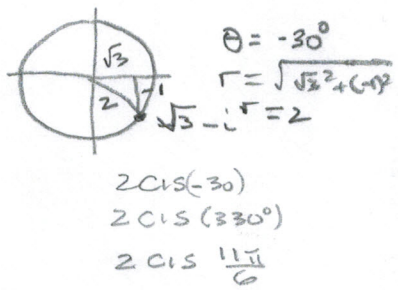 √3
-1
2
√3 - i
θ = -30°
r = √(√3² + (-1)²)
r = 2
2 cis(-30)
2 cis (330°)
2 cis 11π/6